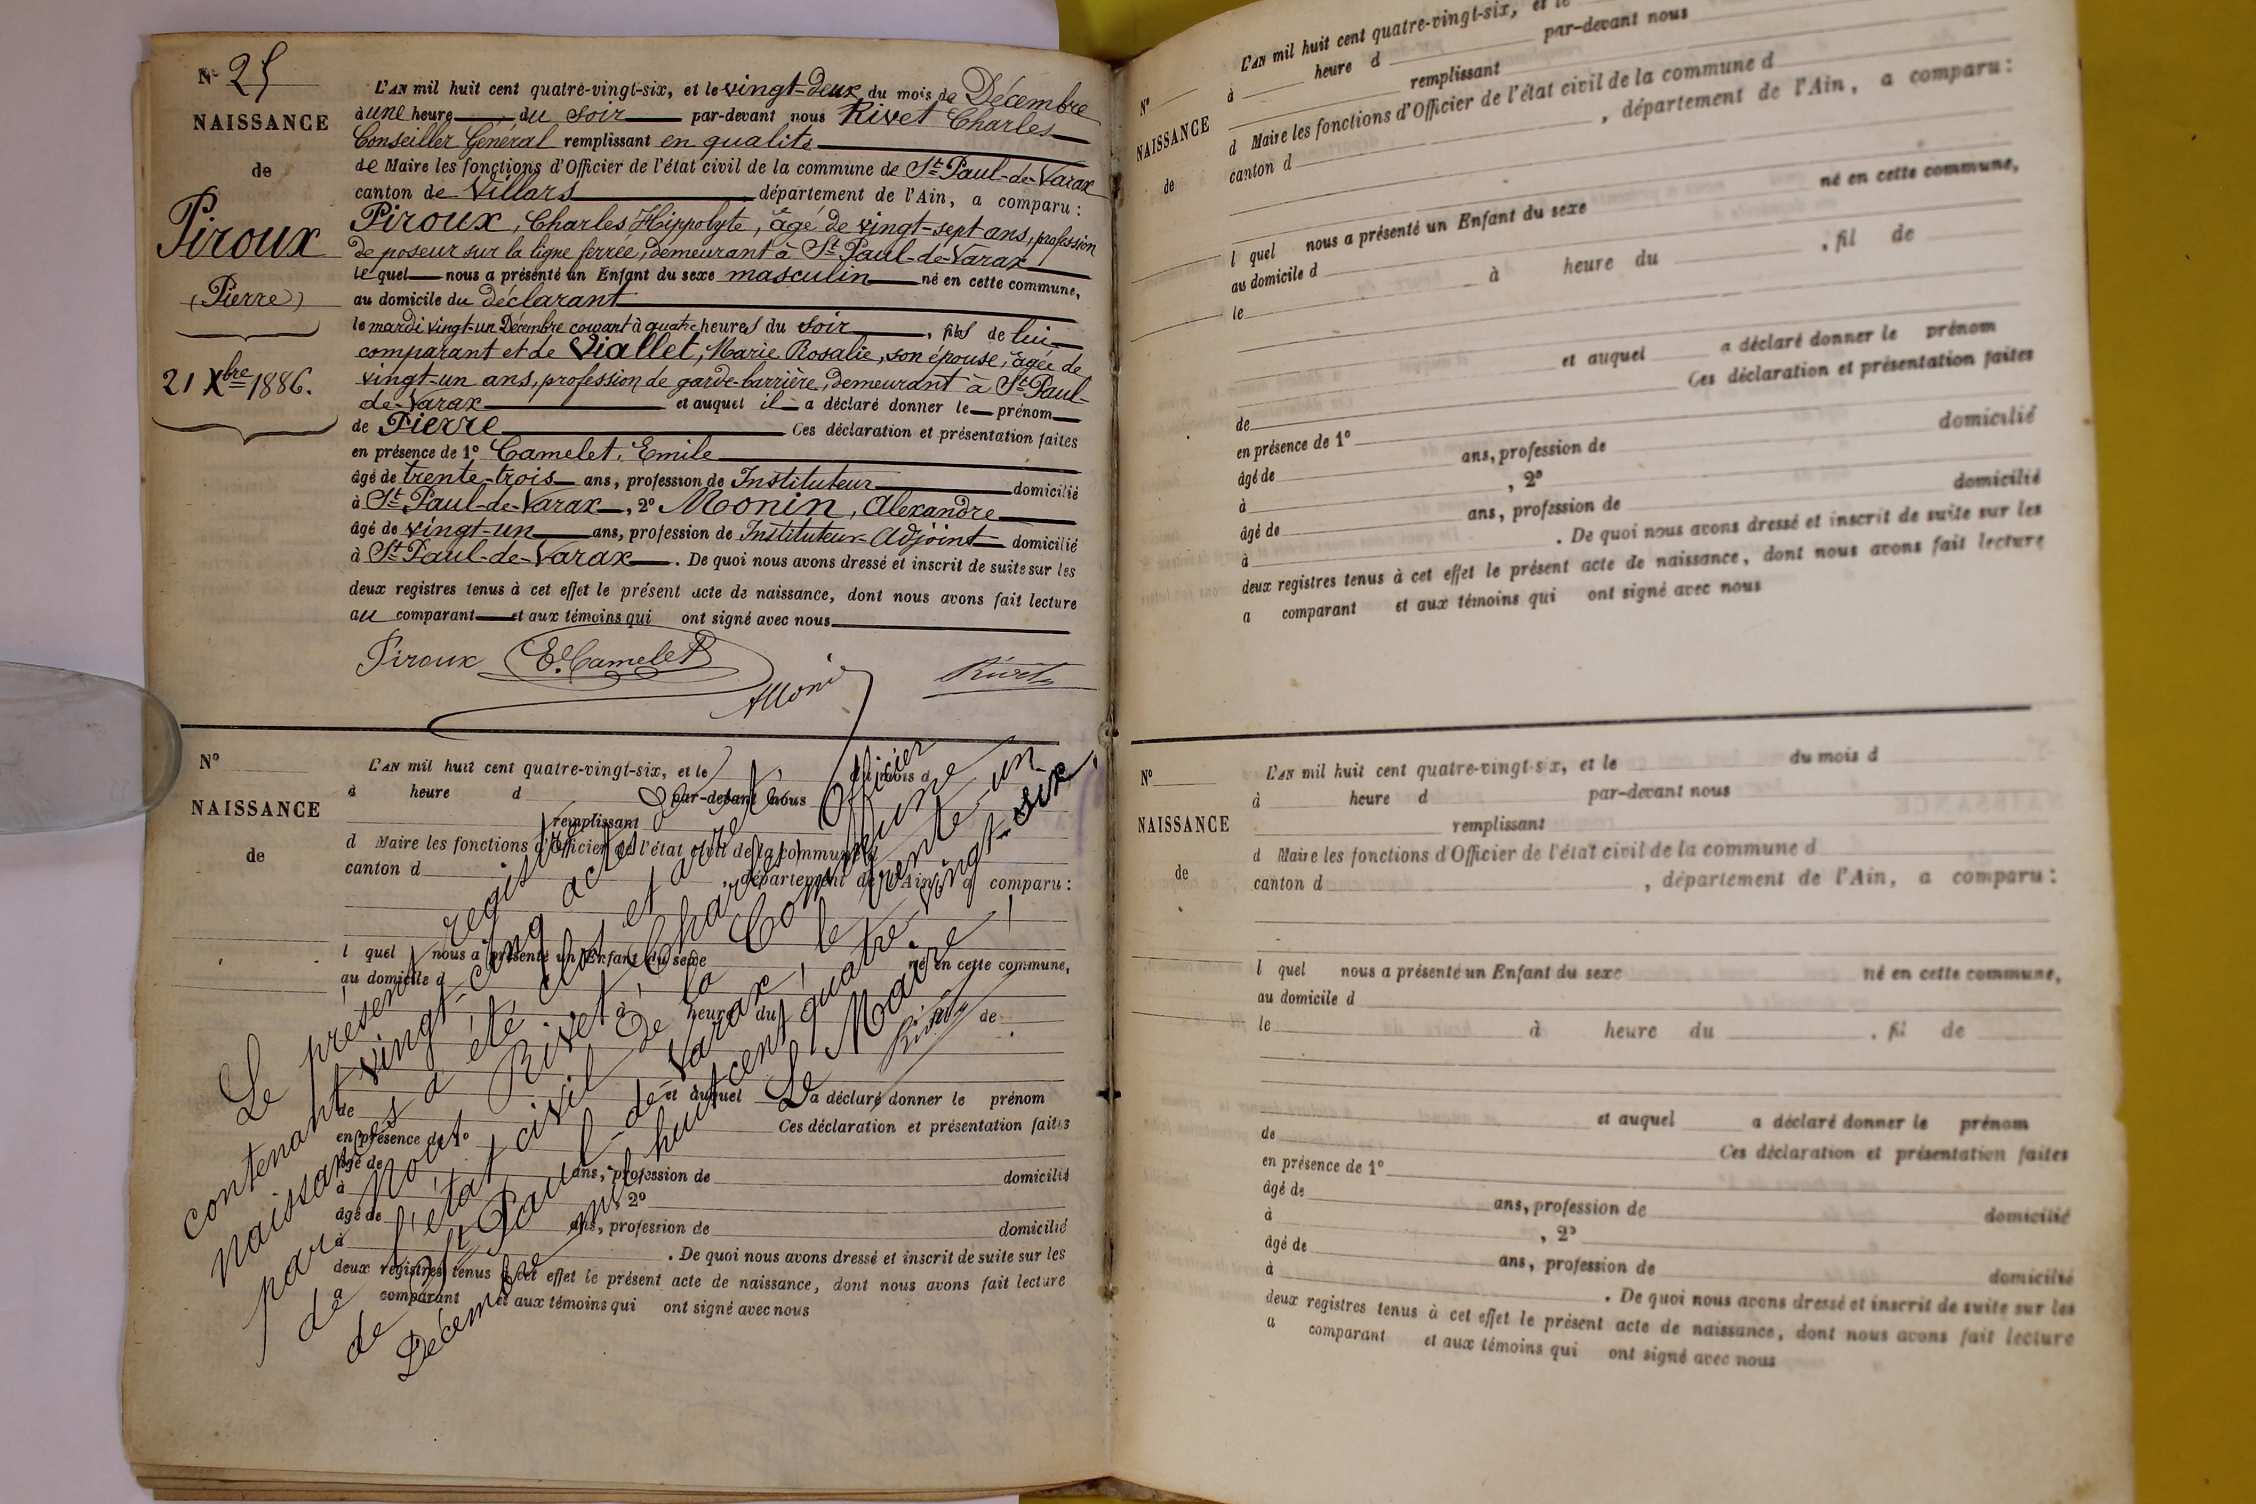 N° 25
NAISSANCE
de
Piroux
(Pierre)
21 Xbre 1886.
L'AN mil huit cent quatre-vingt-six, et le vingt-deux du mois de Décembre
à une heure du soir par-devant nous Rivet Charles
Conseiller Général remplissant en qualité
de Maire les fonctions d'Officier de l'état civil de la commune de St Paul-de-Varax
canton de Villars département de l'Ain, a comparu :
Piroux, Charles Hippolyte, âgé de vingt-sept ans, profession
de poseur sur la ligne ferrée, demeurant à St Paul-de-Varax
le quel nous a présenté un Enfant du sexe masculin né en cette commune,
au domicile du déclarant
le mardi vingt-un Décembre courant à quatre heures du soir, fils de lui
comparant et de Viallet, Marie Rosalie, son épouse, âgée de
vingt-un ans, profession de garde-barrière, demeurant à St Paul-
de-Varax et auquel il a déclaré donner le prénom
de Pierre Ces déclaration et présentation faites
en présence de 1° Camelet, Emile
âgé de trente-trois ans, profession de Instituteur domicilié
à St Paul-de-Varax, 2° Monin, Alexandre
âgé de vingt-un ans, profession de Instituteur-Adjoint domicilié
à St Paul-de-Varax. De quoi nous avons dressé et inscrit de suite sur les
deux registres tenus à cet effet le présent acte de naissance, dont nous avons fait lecture
au comparant et aux témoins qui ont signé avec nous
Piroux E. Camelet AMonin Rivet
N°
NAISSANCE
de
L'AN mil huit cent quatre-vingt-six, et le du mois d
à heure d par-devant nous
remplissant
d Maire les fonctions d'Officier de l'état civil de la commune d
canton d , département de l'Ain, a comparu :
l quel nous a présenté un Enfant du sexe né en cette commune,
au domicile d
heure du de
et auquel a déclaré donner le prénom
de Ces déclaration et présentation faites
en présence de 1°
âgé de ans, profession de domicilié
à , 2°
âgé de ans, profession de domicilié
à . De quoi nous avons dressé et inscrit de suite sur les
deux registres tenus à cet effet le présent acte de naissance, dont nous avons fait lecture
a comparant et aux témoins qui ont signé avec nous
Le présent registre
contenant vingt-cinq actes de
naissances a été clos et arrêté
par Nous Rivet Charles Officier
de l'état civil de la Commune
de St Paul-de-Varax, le trente-un
Décembre mil huit cent quatre-vingt-six,
Le Maire,
Rivet
N°
NAISSANCE
de
L'AN mil huit cent quatre-vingt-six, et le
à heure d par-devant nous
remplissant
d Maire les fonctions d'Officier de l'état civil de la commune d
canton d , département de l'Ain, a comparu :
l quel nous a présenté un Enfant du sexe né en cette commune,
au domicile d
le à heure du , fil de
et auquel a déclaré donner le prénom
de Ces déclaration et présentation faites
en présence de 1°
âgé de ans, profession de domicilié
à , 2°
âgé de ans, profession de domicilié
à . De quoi nous avons dressé et inscrit de suite sur les
deux registres tenus à cet effet le présent acte de naissance, dont nous avons fait lecture
a comparant et aux témoins qui ont signé avec nous
N°
NAISSANCE
de
L'AN mil huit cent quatre-vingt-six, et le du mois d
à heure d par-devant nous
remplissant
d Maire les fonctions d'Officier de l'état civil de la commune d
canton d , département de l'Ain, a comparu :
l quel nous a présenté un Enfant du sexe né en cette commune,
au domicile d
le à heure du , fil de
et auquel a déclaré donner le prénom
de Ces déclaration et présentation faites
en présence de 1°
âgé de ans, profession de domicilié
à , 2°
âgé de ans, profession de domicilié
à . De quoi nous avons dressé et inscrit de suite sur les
deux registres tenus à cet effet le présent acte de naissance, dont nous avons fait lecture
a comparant et aux témoins qui ont signé avec nous